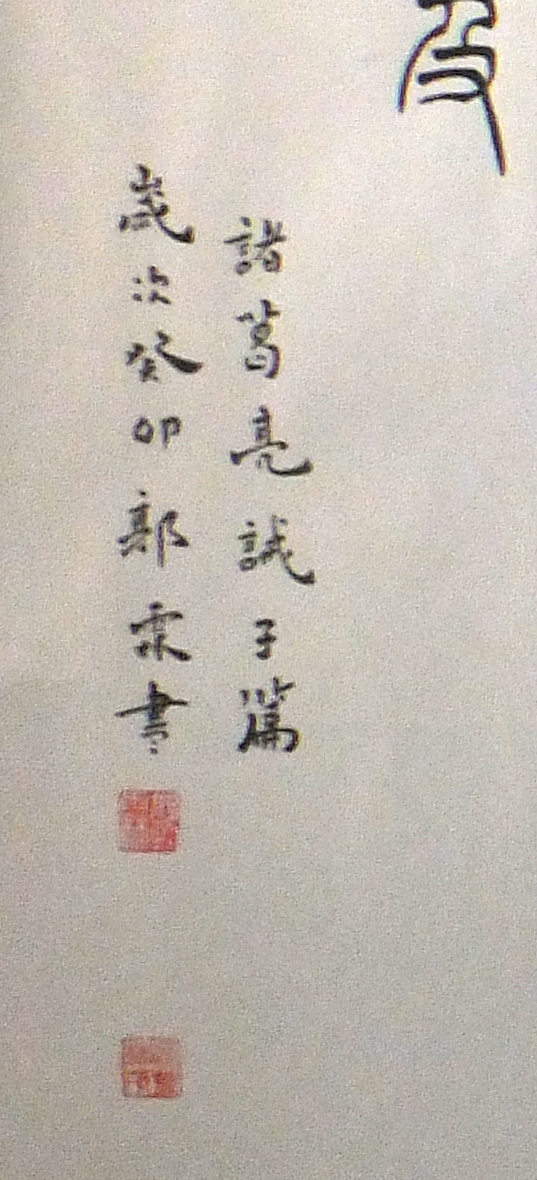 及
諸葛亮誡子篇
歲次癸卯郭霖書